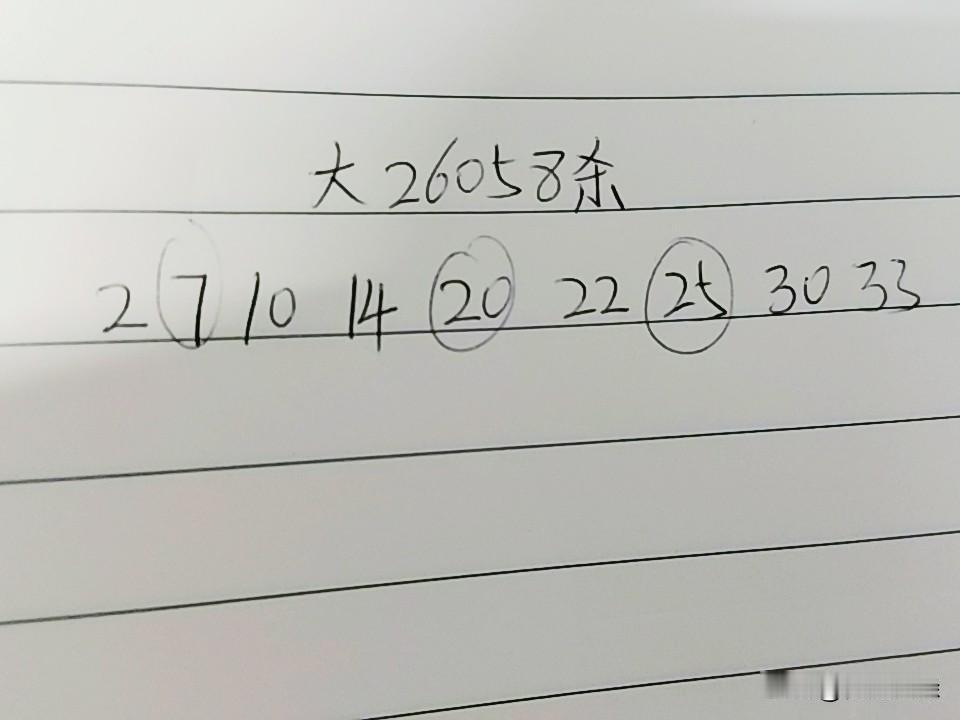 大26058杀
2 7 10 14 20 22 25 30 33